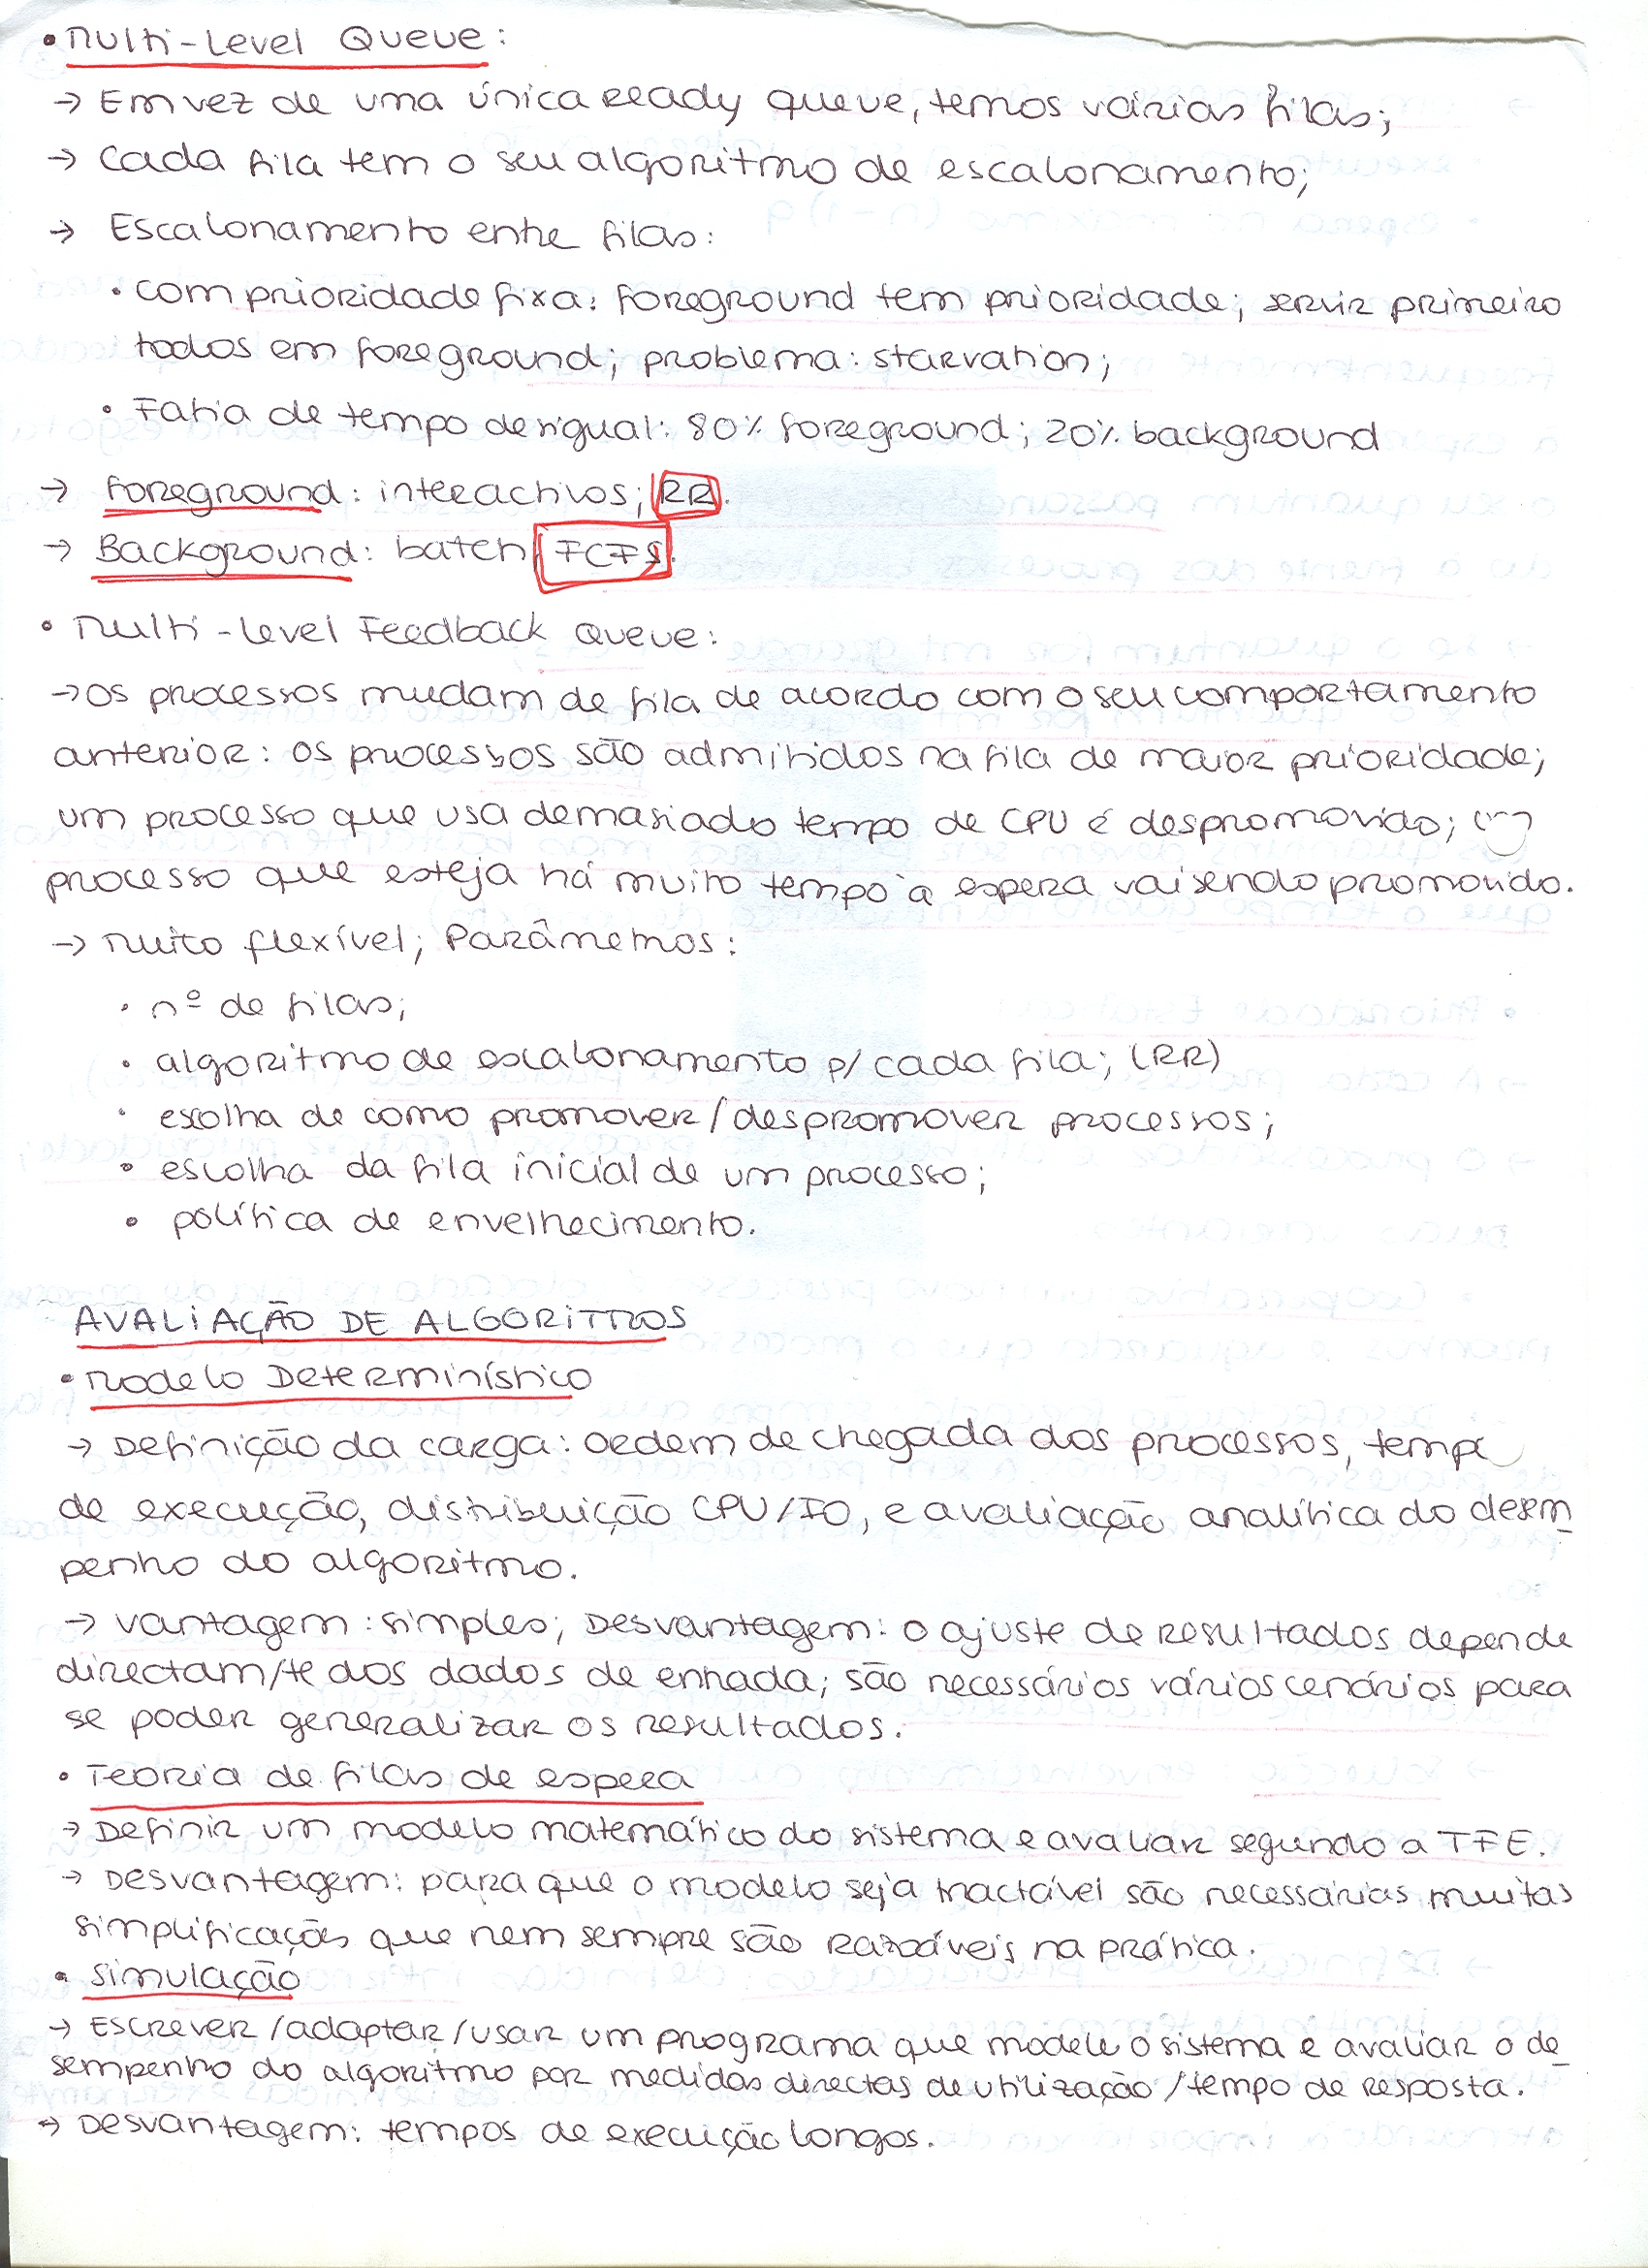 • Multi-Level Queue:
→ Em vez de uma única ready queue, temos várias filas;
→ Cada fila tem o seu algoritmo de escalonamento;
→ Escalonamento entre filas:
• com prioridade fixa: foreground tem prioridade; servir primeiro
todos em foreground; problema: starvation;
• Fatia de tempo desigual: 80% foreground; 20% background
→ Foreground: interactivos; RR.
→ Background: batch, FCFS.
• Multi-Level Feedback Queue:
→ Os processos mudam de fila de acordo com o seu comportamento
anterior: os processos são admitidos na fila de maior prioridade;
um processo que usa demasiado tempo de CPU é despromovido; um
processo que esteja há muito tempo à espera vai sendo promovido.
→ Muito flexível; Parâmetros:
• nº de filas;
• algoritmo de escalonamento p/ cada fila; (RR)
• escolha de como promover/despromover processos;
• escolha da fila inicial de um processo;
• política de envelhecimento.
AVALIAÇÃO DE ALGORITMOS
• Modelo Determinístico
→ Definição da carga: ordem de chegada dos processos, tempo
de execução, distribuição CPU/IO, e avaliação analítica do desem
penho do algoritmo.
→ Vantagem: simples; Desvantagem: o ajuste de resultados depende
directam/te dos dados de entrada; são necessários vários cenários para
se poder generalizar os resultados.
• Teoria de filas de espera
→ Definir um modelo matemático do sistema e avaliar segundo a TFE.
→ Desvantagem: para que o modelo seja tractável são necessárias muitas
simplificações que nem sempre são razoáveis na prática.
• Simulação
→ Escrever/adaptar/usar um programa que modele o sistema e avaliar o de_
sempenho do algoritmo por medidas directas de utilização/tempo de resposta.
→ Desvantagem: tempos de execução longos.